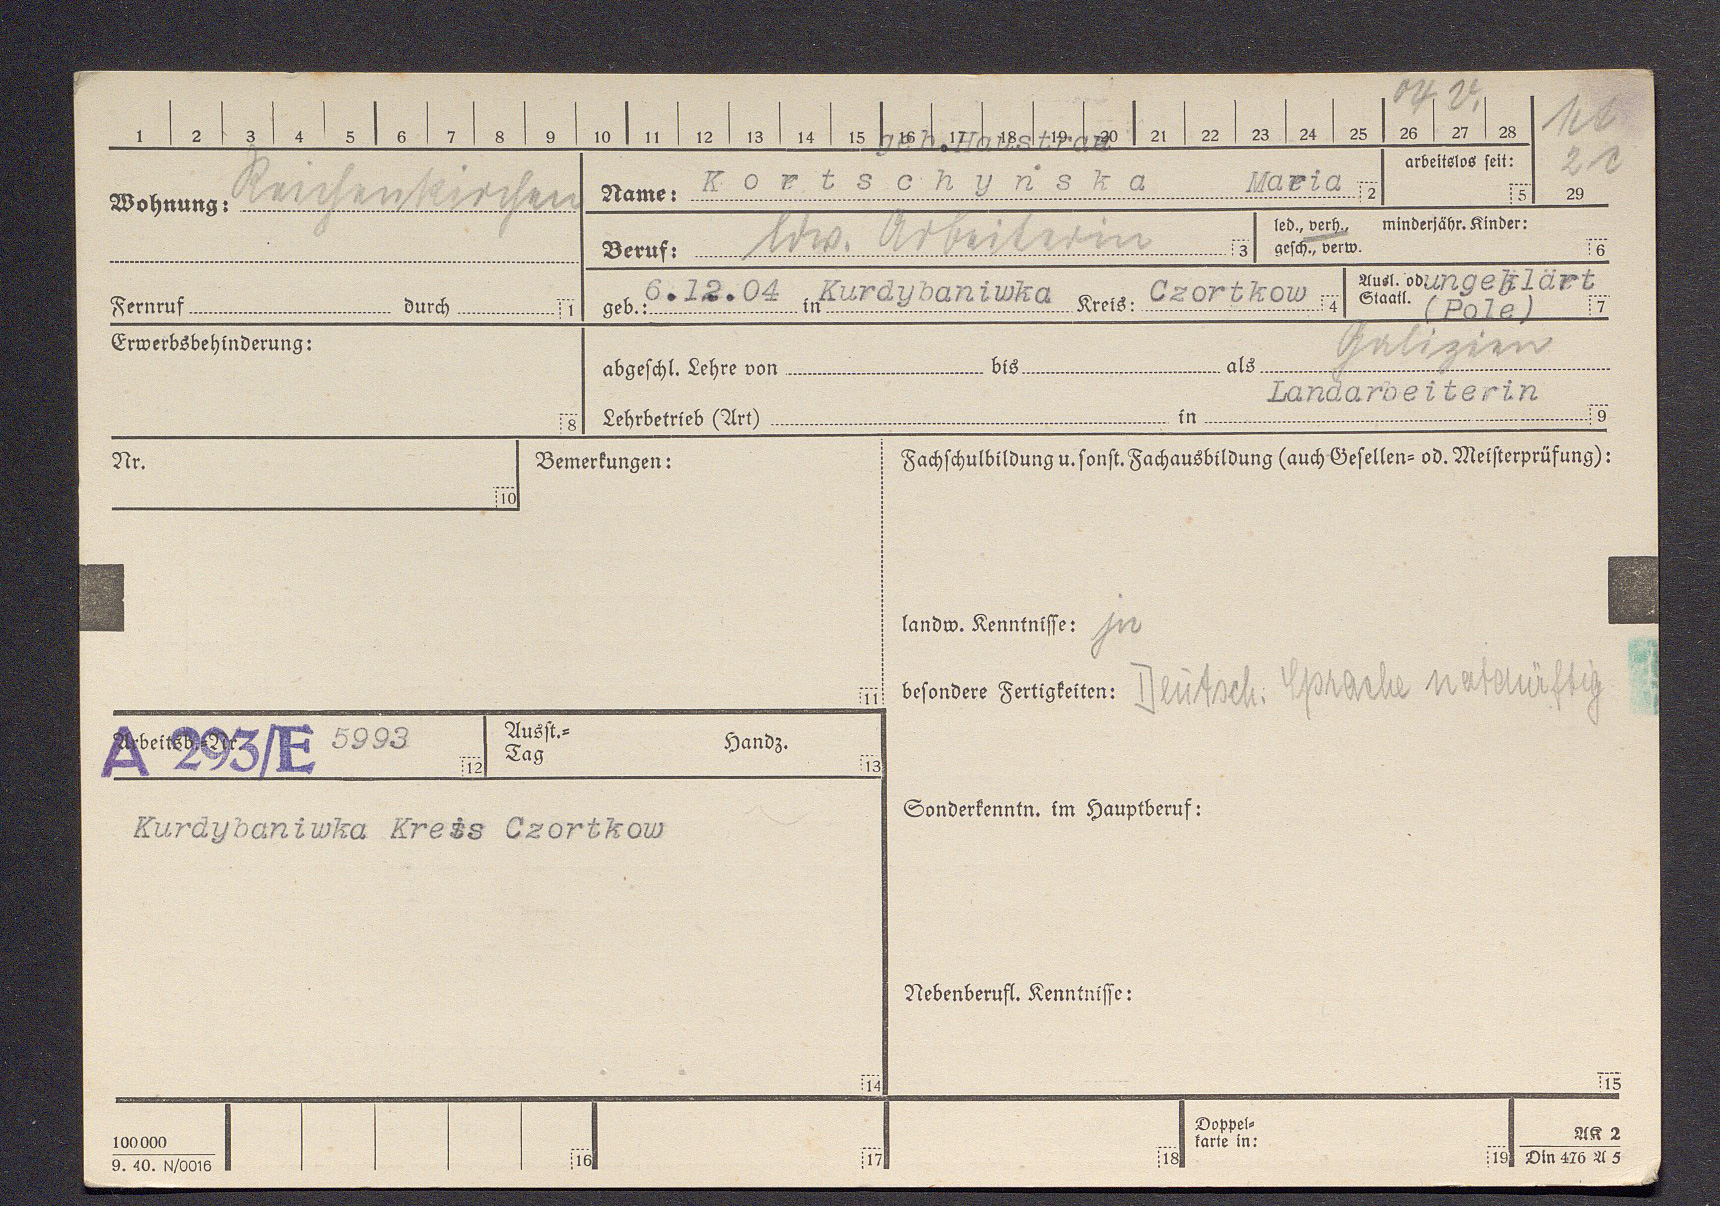 04 V.
1 2 3 4 5 6 7 8 9 10 11 12 13 14 15 16 17 18 19 20 21 22 23 24 25 26 27 28
geb.
Wohnung: Reichenkirchen
Name: Kortschynska Maria 2
arbeitslos seit: 5
29
Beruf: ldw. Arbeiterin 3
led., verh., minderjähr. Kinder:
gesch., verw. 6
Fernruf durch 1
geb.: 6.12.04 in Kurdybaniwka Kreis: Czortkow 4
Ausl. od. ungeklärt
Staatl. (Pole) 7
Erwerbsbehinderung: 8
Galizien
abgeschl. Lehre von bis als
Landarbeiterin
Lehrbetrieb (Art) in 9
Nr. 10
Bemerkungen: 11
Fachschulbildung u. sonst. Fachausbildung (auch Gesellen= od. Meisterprüfung):
landw. Kenntnisse: ja
besondere Fertigkeiten: Deutsch. Sprache notdürftig
Arbeitsb.=Nr A 293/E 5993 12
Ausst.= Handz.
Tag 13
Kurdybaniwka Kreis Czortkow
14
Sonderkenntn. im Hauptberuf:
Nebenberufl. Kenntnisse:
15
100 000
9. 40. N/0016
16 17 18
Doppel=
karte in: 19
AK 2
Din 476 A 5